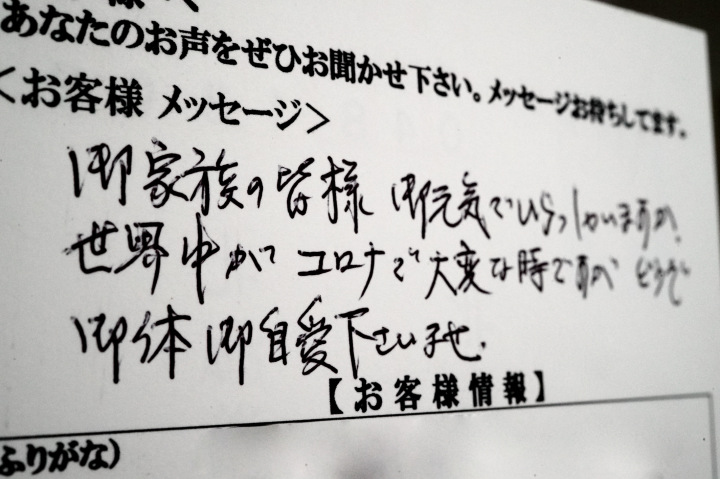 あなたのお声をぜひお聞かせ下さい。メッセージお待ちしてます。
<お客様 メッセージ>
御家族の皆様 御元気でいらっしゃいますか、
世界中がコロナで大変な時ですが どうぞ
御体御自愛下さいませ.
【お客様情報】
ふりがな)